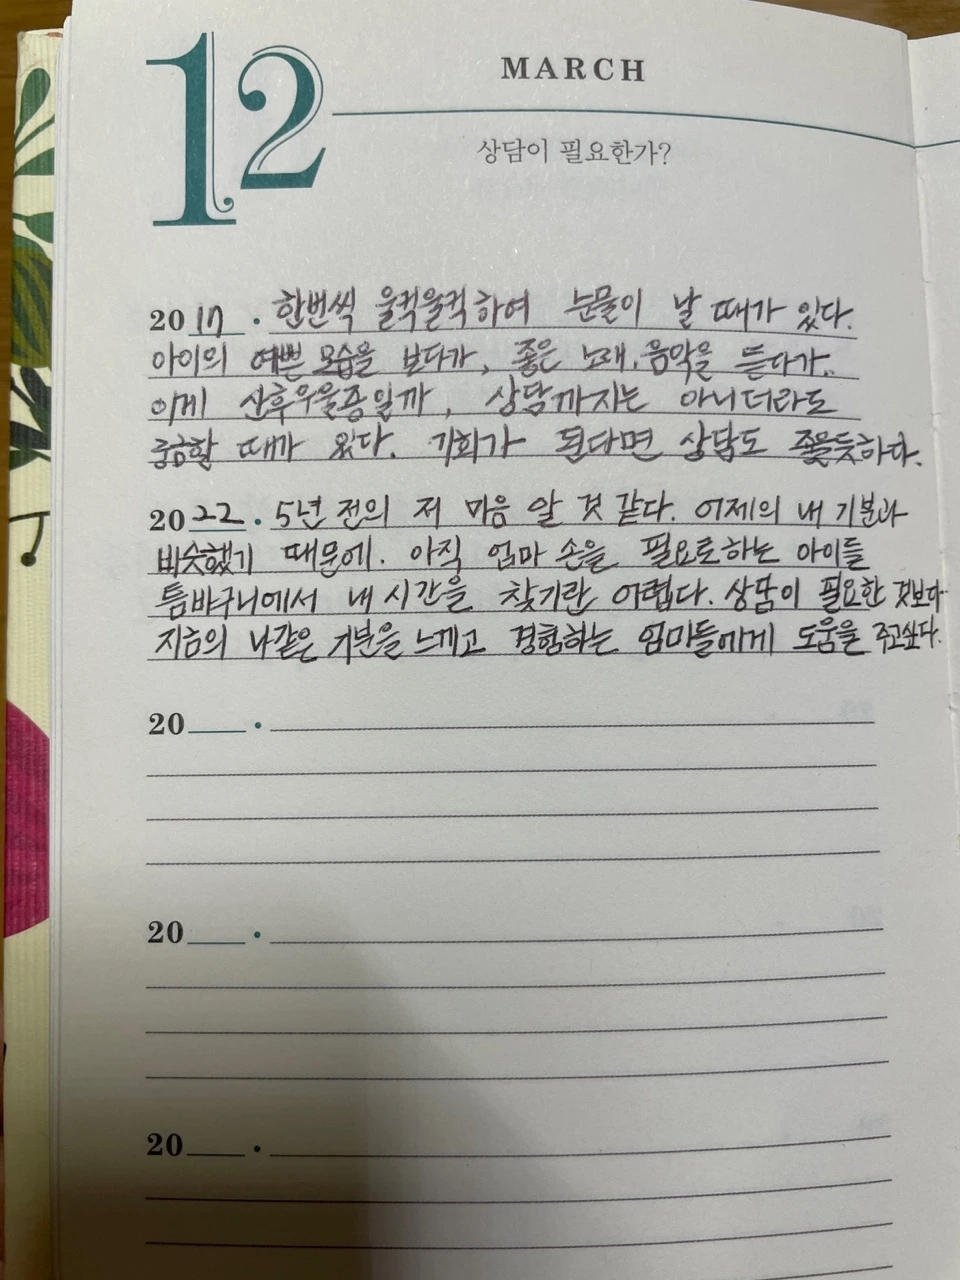 12
MARCH
상담이 필요한가?
2017. 한번씩 울컥울컥하여 눈물이 날 때가 있다.
아이의 예쁜 모습을 보다가, 좋은 노래.음악을 듣다가..
이게 산후우울증일까, 상담까지는 아니더라도
궁금할 때가 있다. 기회가 된다면 상담도 좋을듯하다.
2022. 5년 전의 저 마음 알 것 같다. 어제의 내 기분과
비슷했기 때문에. 아직 엄마 손을 필요로하는 아이들
틈바구니에서 내 시간을 찾기란 어렵다. 상담이 필요한 것보다
지금의 나같은 기분을 느끼고 경험하는 엄마들에게 도움을 주고싶다.
20 .
20 .
20 .